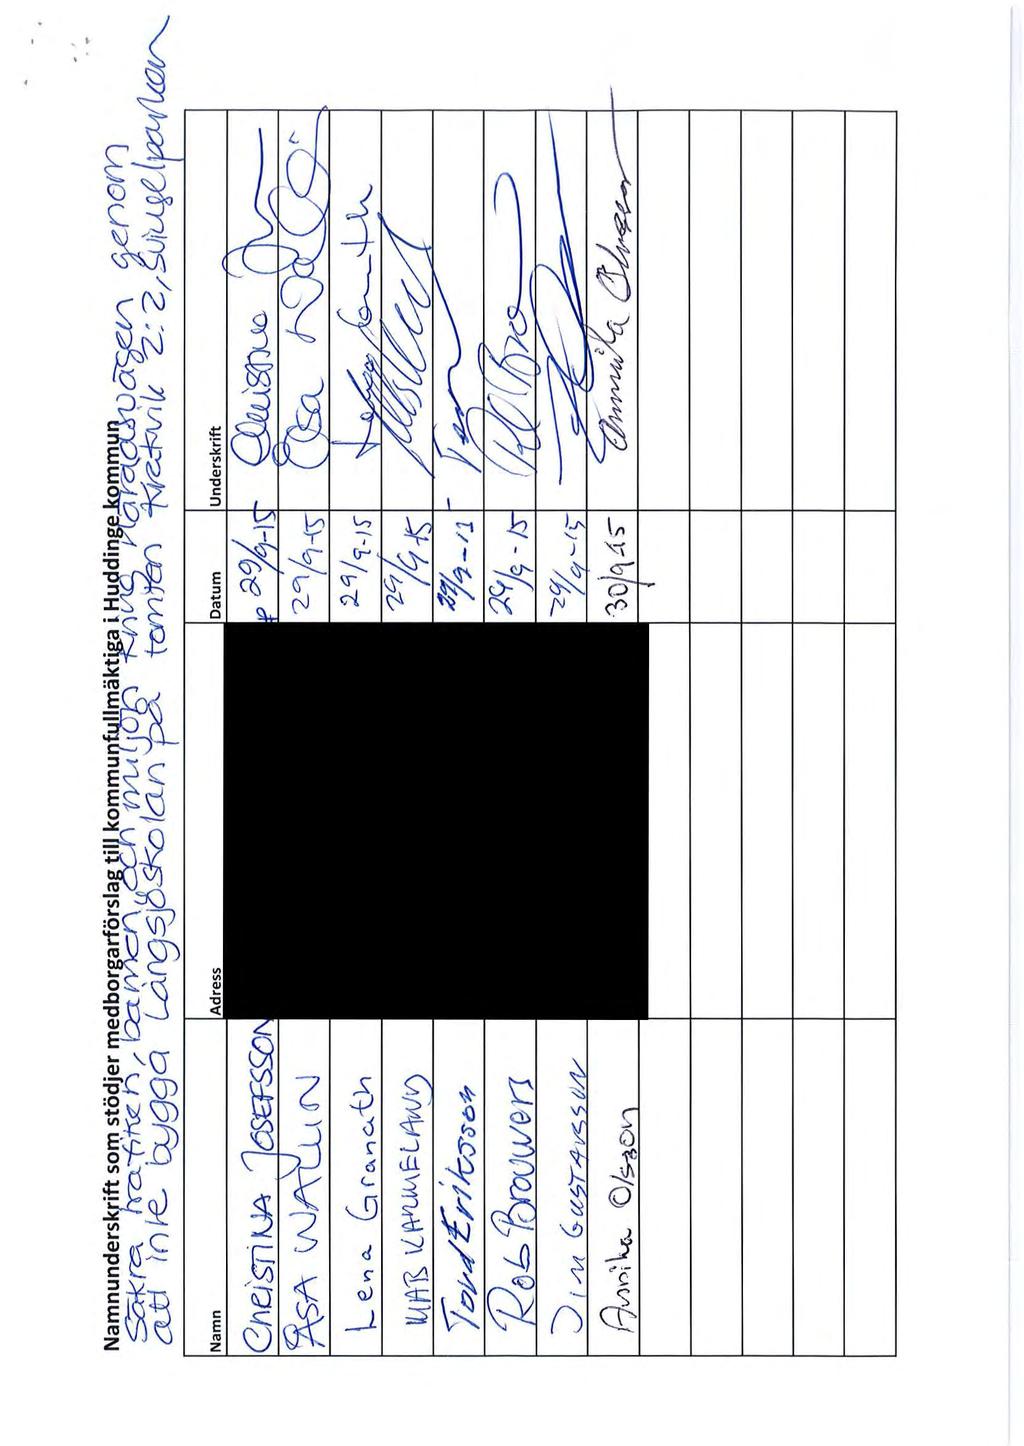 Namnunderskrift som stödjer medborgarförslag till kommunfullmäktiga i Huddinge kommun
Säkra trafiken, barnen och miljön kring Häradsvägen genom
att inte bygga Långsjöskolan på tomten Kratvik 2:2, Svingelparken
Namn Adress Datum Underskrift
CHRISTINA JOSEFSSON 29/9-15
ÅSA WALLIN 29/9-15 Åsa
Lena Granath 29/9-15
29/9-15
Tord Eriksson 29/9-15
Rob Brouwers 29/9-15
JIM GUSTAVSSON 29/9-15
Annika Olsson 30/9-15 Annika Olsson